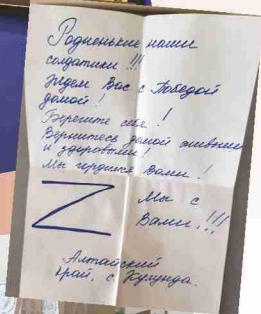 Родненькие наши
солдатики !!!
Ждем Вас с Победой
домой !
Берегите себя !
Вернитесь домой живыми
и здоровыми !
Мы гордимся Вами !
Z
Мы с
Вами !!!
Алтайский
край, с. Кулунда.